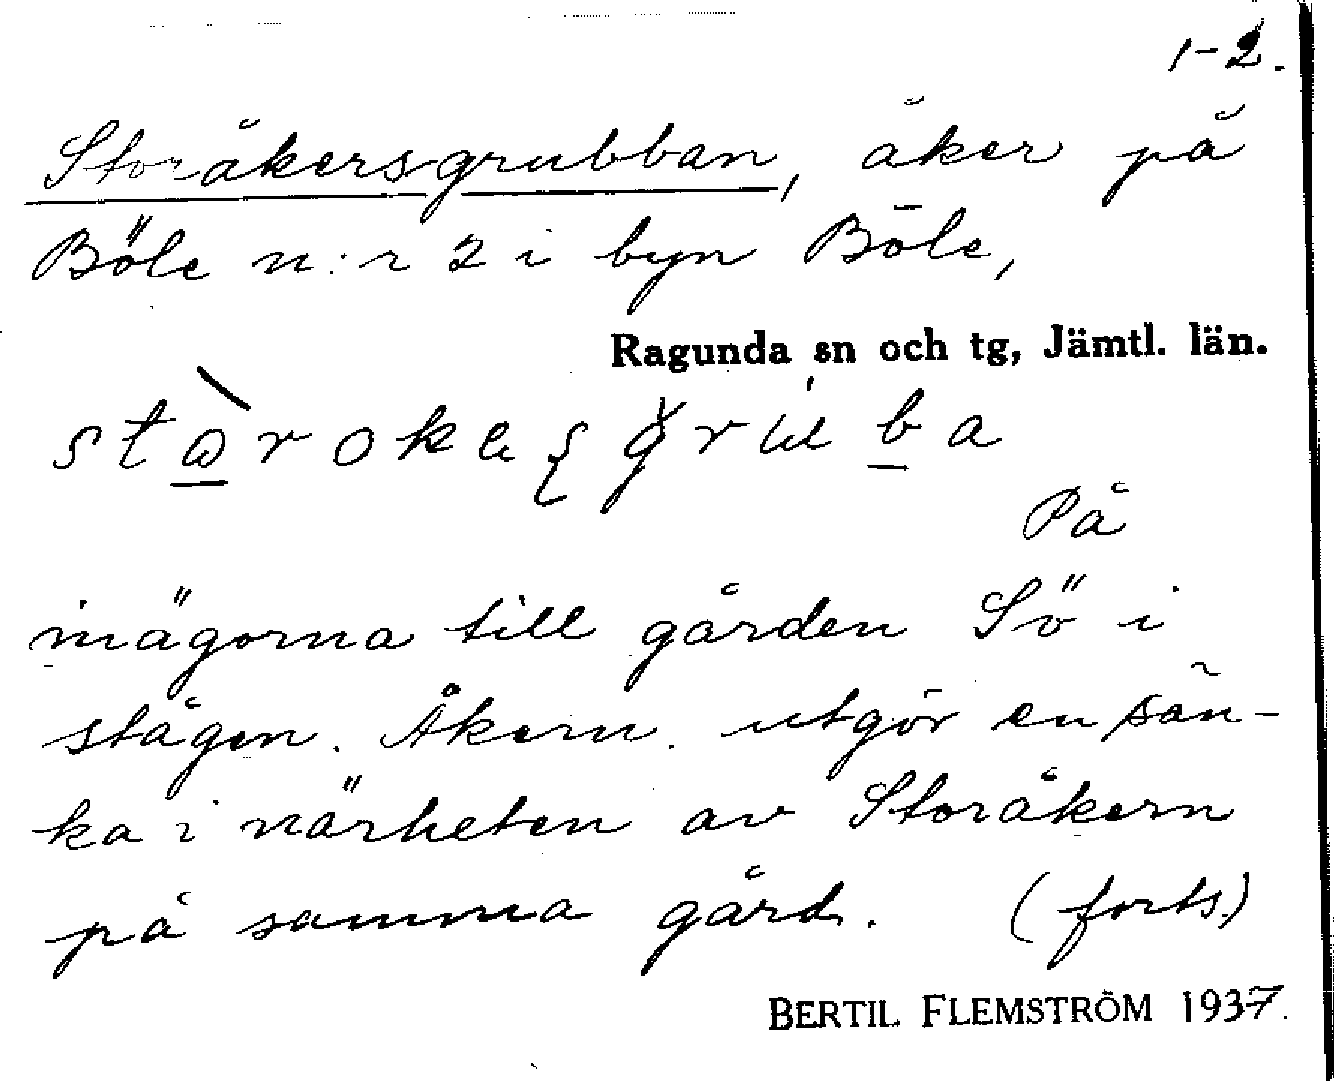 1-2.
Storåkersgrubban, åker på
Böle n:r 2 i byn Böle,
Ragunda sn och tg, Jämtl. län.
På
inägorna till gården Sö i
stägen. Åkern utgör en sän-
ka i närheten av Storåkern
på samma gård. (forts.)
BERTIL FLEMSTRÖM 1937.